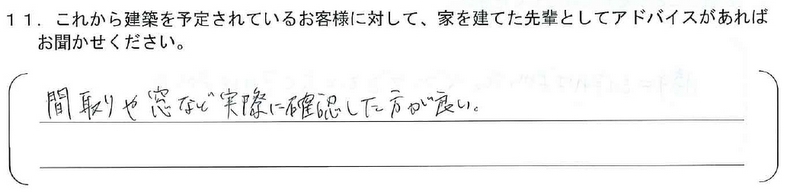 11．これから建築を予定されているお客様に対して、家を建てた先輩としてアドバイスがあれば
お聞かせください。
間取りや窓など実際に確認した方が良い。